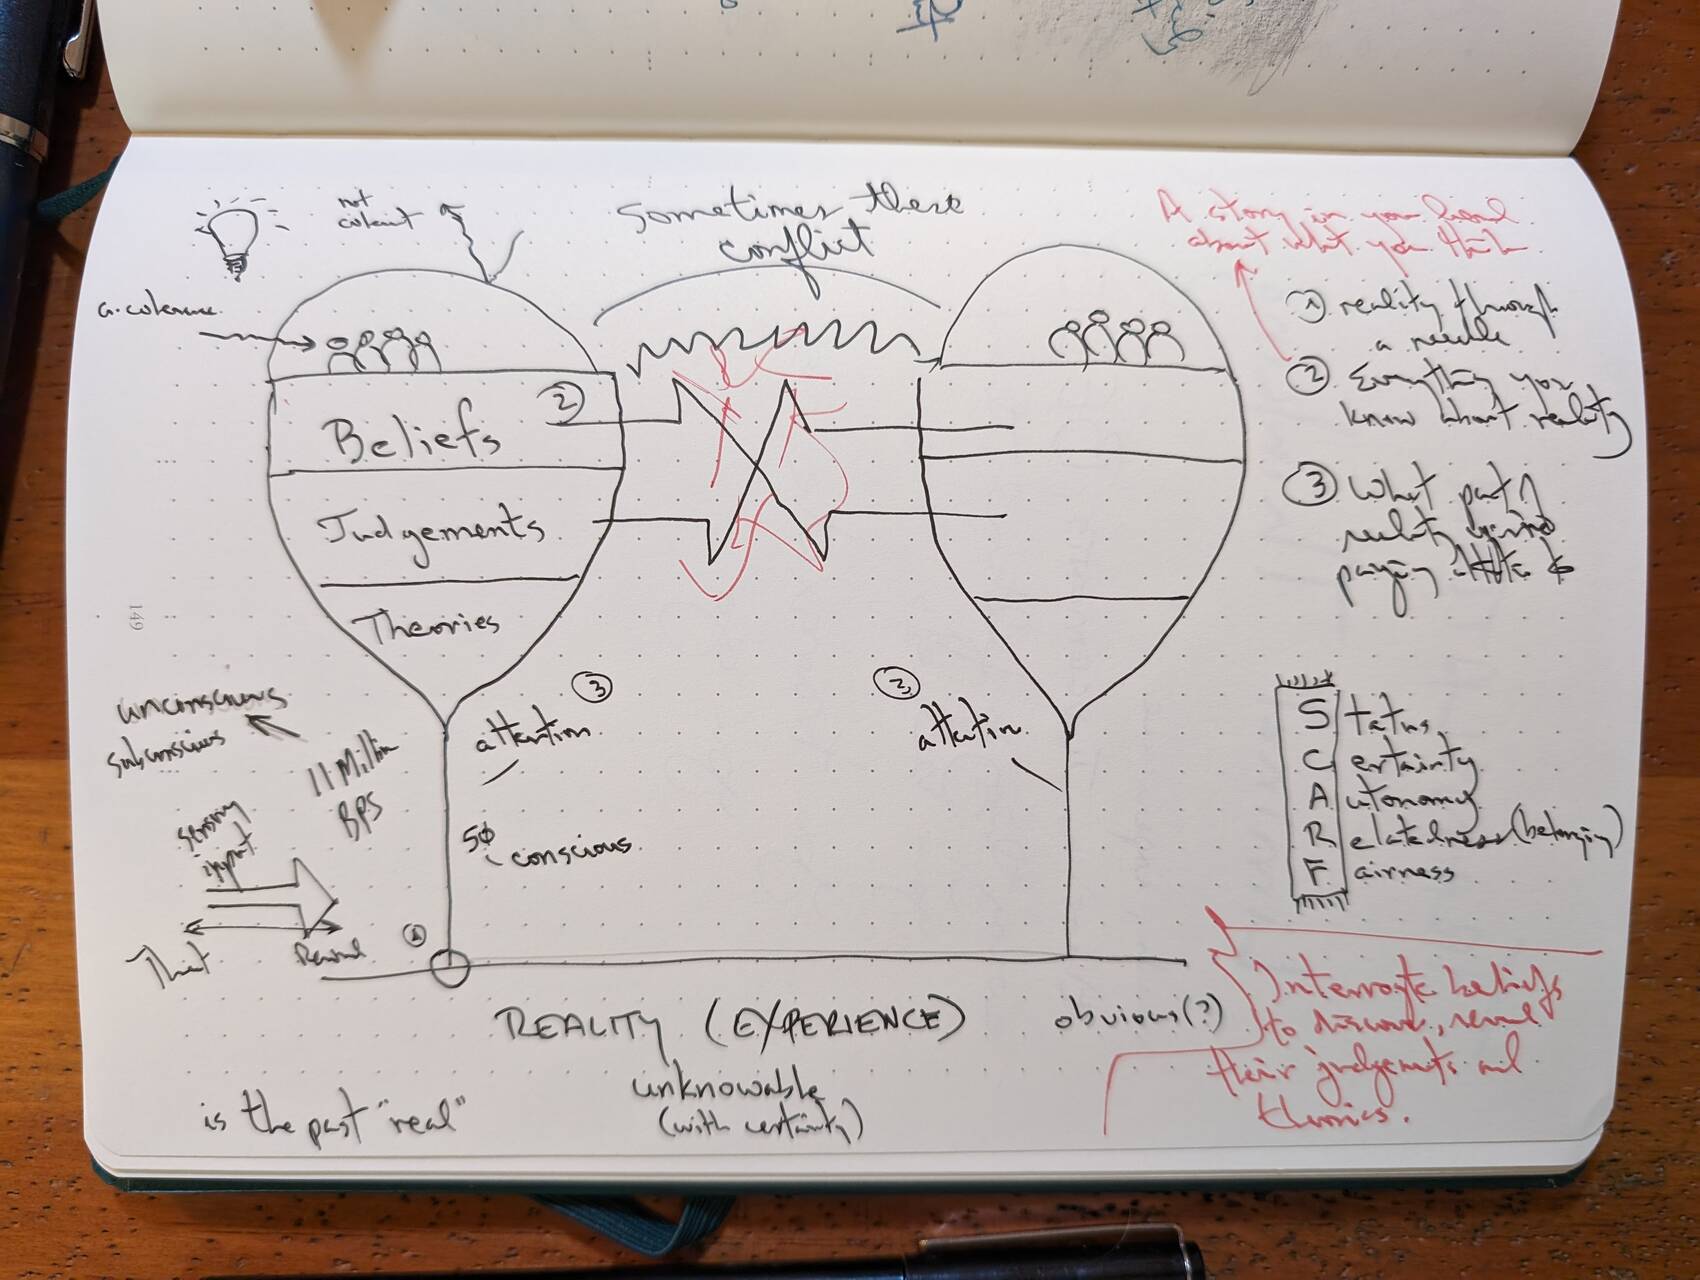 not
coherent
Sometimes these
conflict
A story in your head
about what you think
① reality through
a needle
② Everything you
know about reality
③ What part of
reality you're
paying attention to
Beliefs
②
Judgements
Theories
149
③
attention
③
attention
unconscious
subconscious
11 Million
BPS
sensory
input
50
conscious
Threat
Reward
①
Status
Certainty
Autonomy
Relatedness (belonging)
Fairness
REALITY (EXPERIENCE)
obvious(?)
unknowable
(with certainty)
is the past "real"
Interrogate beliefs
to discover, reveal
their judgements and
theories.